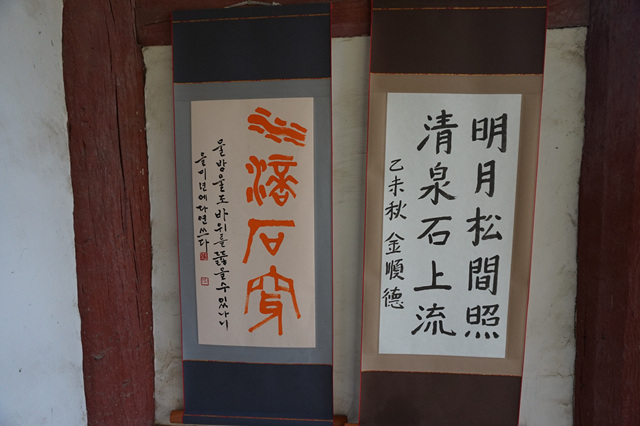 明月松間照
清泉石上流
乙未秋 金順德
水滴石穿
물방울도 바위를 뚫을 수 있나니
을미년에 다연 쓰다